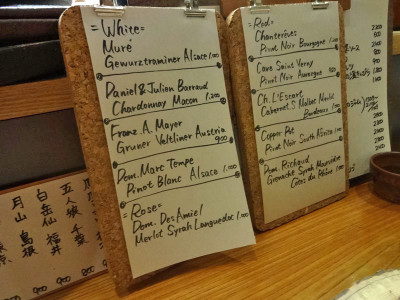 =White=
Muré
Gewurztraminer Alsace 1.100
Daniel & Julien Barraud
Chardonnay Macon 1.200
Franz. A. Mayer
Gruner Veltliner Austria
900
Dom. Marc Tempe
Pinot Blanc Alsace 1.100
=Rose=
Dom. Des Amiel
Merlot Syrah Languedoc 1.000
=Red=
Chantereves
Pinot Noir Bourgogne
Cave Saint Verny
Pinot Noir Auvergne 900
Ch. L'Escart
Cabernet.S Malbec Merlot
Bordeaux
Copper Pot
Pinot Noir South Africa
Dom. Richaud
Grenache Syrah
Côtes du Rhône
五人娘 千葉
白岳仙 福井
月山 島根
900
900
900